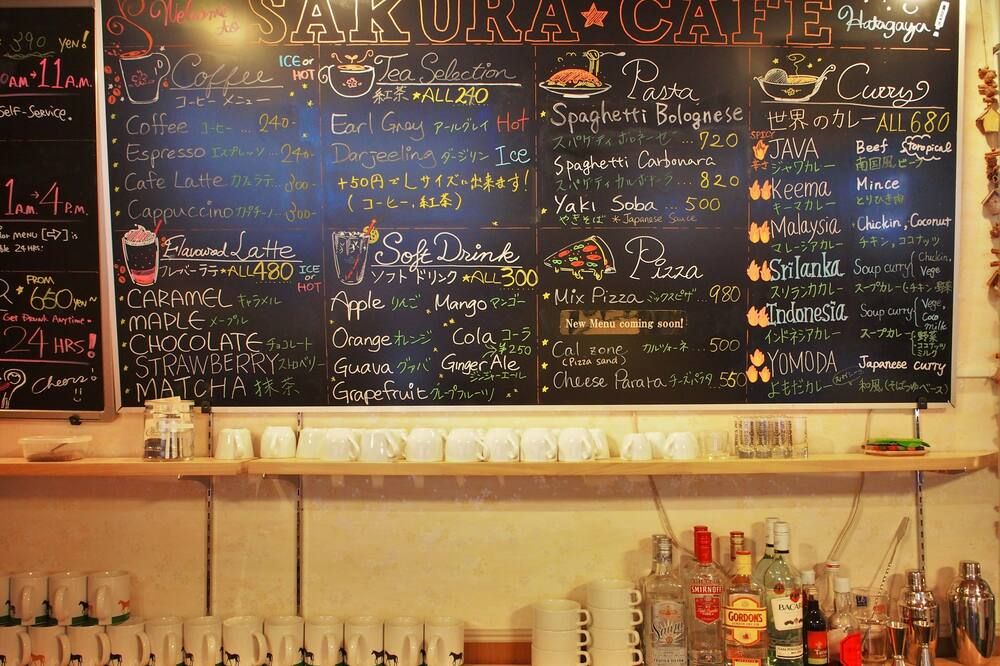 390 yen!
AM → 11 A.M.
Self-Service.
1 A.M. → 4 P.M.
or MENU [⇨] is
24 HRS!
FROM
650 yen~
Get Drunk Anytime.
24 HRS!
Cheers!
Welcome to
SAKURA★CAFE
Hatagaya!
Coffee ICE or HOT
コーヒー メニュー
Coffee コーヒー ... 240-
Espresso エスプレッソ ... 240-
Cafe Latte カフェラテ ... 300-
Cappuccino カプチーノ ... 300-
Flavoured Latte
フレーバーラテ ★ALL480 ICE or HOT
CARAMEL キャラメル
MAPLE メープル
CHOCOLATE チョコレート
STRAWBERRY ストロベリー
MATCHA 抹茶
Tea Selection
紅茶 ★ALL 240
Earl Grey アールグレイ Hot
Darjeeling ダージリン Ice
+50円でLサイズ出来ます!
(コーヒー、紅茶)
Soft Drink
ソフトドリンク ★ALL300
Apple りんご Mango マンゴー
Orange オレンジ Cola コーラ
¥250
Guava グァバ Ginger Ale
ジンジャーエール
Grapefruit グレープフルーツ
Pasta
Spaghetti Bolognese
スパゲティ ボロネーゼ ... 720
Spaghetti Carbonara
スパゲティ カルボナーラ ... 820
Yaki Soba ... 500
やきそば *Japanese Sauce
Pizza
Mix Pizza ミックスピザ ... 980
New Menu coming soon!
Cal zone カルツォーネ ... 500
(Pizza sand)
Cheese Parata チーズパラタ ... 550
Curry
世界のカレー ALL 680
SPICY
JAVA Beef Toropical
ジャワカレー 南国風ビーフ
Keema Mince
キーマカレー とりひき肉
Malaysia Chickin, Coconut
マレーシアカレー チキン, ココナッツ
Srilanka Soup curry { Chickin, Vege
スリランカカレー スープカレー { チキン・野菜
Indonesia Soup curry { Vege, Coco milk
インドネシアカレー スープカレー { 野菜 ココナッツミルク
YOMODA Japanese curry
よもだカレー 和風(そばつゆベース)
Sauza
SMIRNOFF
GORDON'S
BACAR